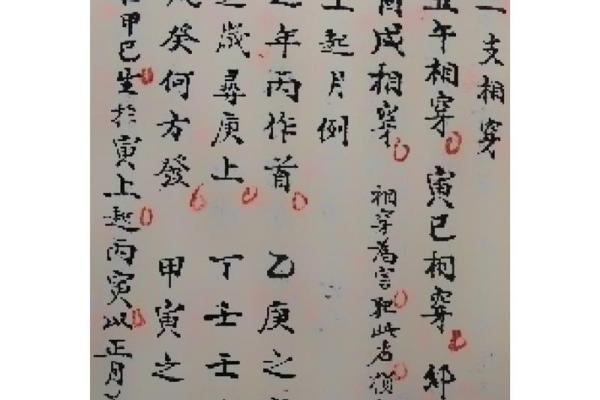 支相穿
午相穿 寅巳相穿 卯
酉戌相穿 相穿為害犯此者
上起月例
之年丙作首 乙庚之
之歲尋庚上 丁壬壬
戊癸何方發 甲寅之
甲己生於寅上起丙寅以正月